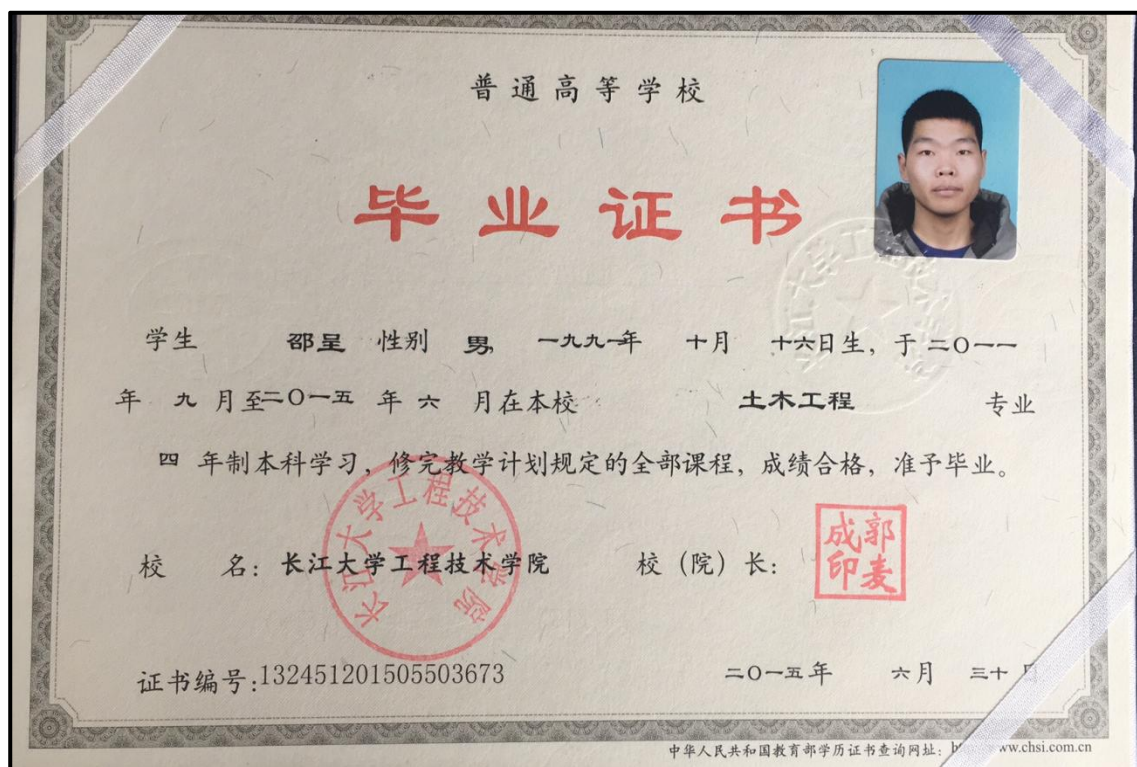 普通高等学校
毕业证书
学生 邵呈 性别 男, 一九九一年 十月 十六日生, 于二〇一一
年 九 月至二〇一五 年 六 月在本校 土木工程 专业
四 年制本科学习, 修完教学计划规定的全部课程, 成绩合格, 准予毕业。
长江大学工程技术学院
校 名: 长江大学工程技术学院 校 (院) 长: 郭麦成印
证书编号:132451201505503673 二〇一五年 六月 三十
中华人民共和国教育部学历证书查询网址: ww.chsi.com.cn